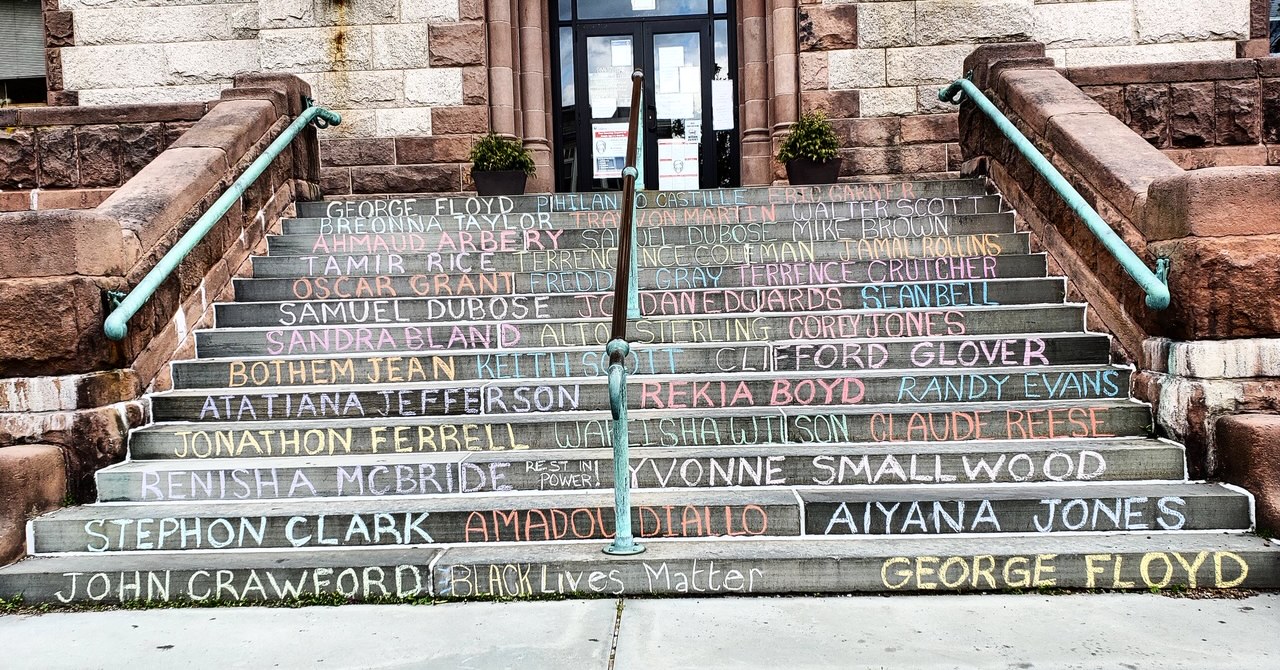 GEORGE FLOYD PHILANDO CASTILLE ERIC GARNER
BREONNA TAYLOR TRAYVON MARTIN WALTER SCOTT
AHMAUD ARBERY SAMUEL DUBOSE MIKE BROWN
TAMIR RICE TERRENCE COLEMAN JAMAL ROLLINS
OSCAR GRANT FREDDIE GRAY TERRENCE CRUTCHER
SAMUEL DUBOSE JORDAN EDWARDS SEAN BELL
SANDRA BLAND ALTON STERLING COREY JONES
BOTHEM JEAN KEITH SCOTT CLIFFORD GLOVER
ATATIANA JEFFERSON REKIA BOYD RANDY EVANS
JONATHON FERRELL WILSON CLAUDE REESE
RENISHA MCBRIDE REST IN POWER! YVONNE SMALLWOOD
STEPHON CLARK AMADOU DIALLO AIYANA JONES
JOHN CRAWFORD BLACK Lives Matter GEORGE FLOYD